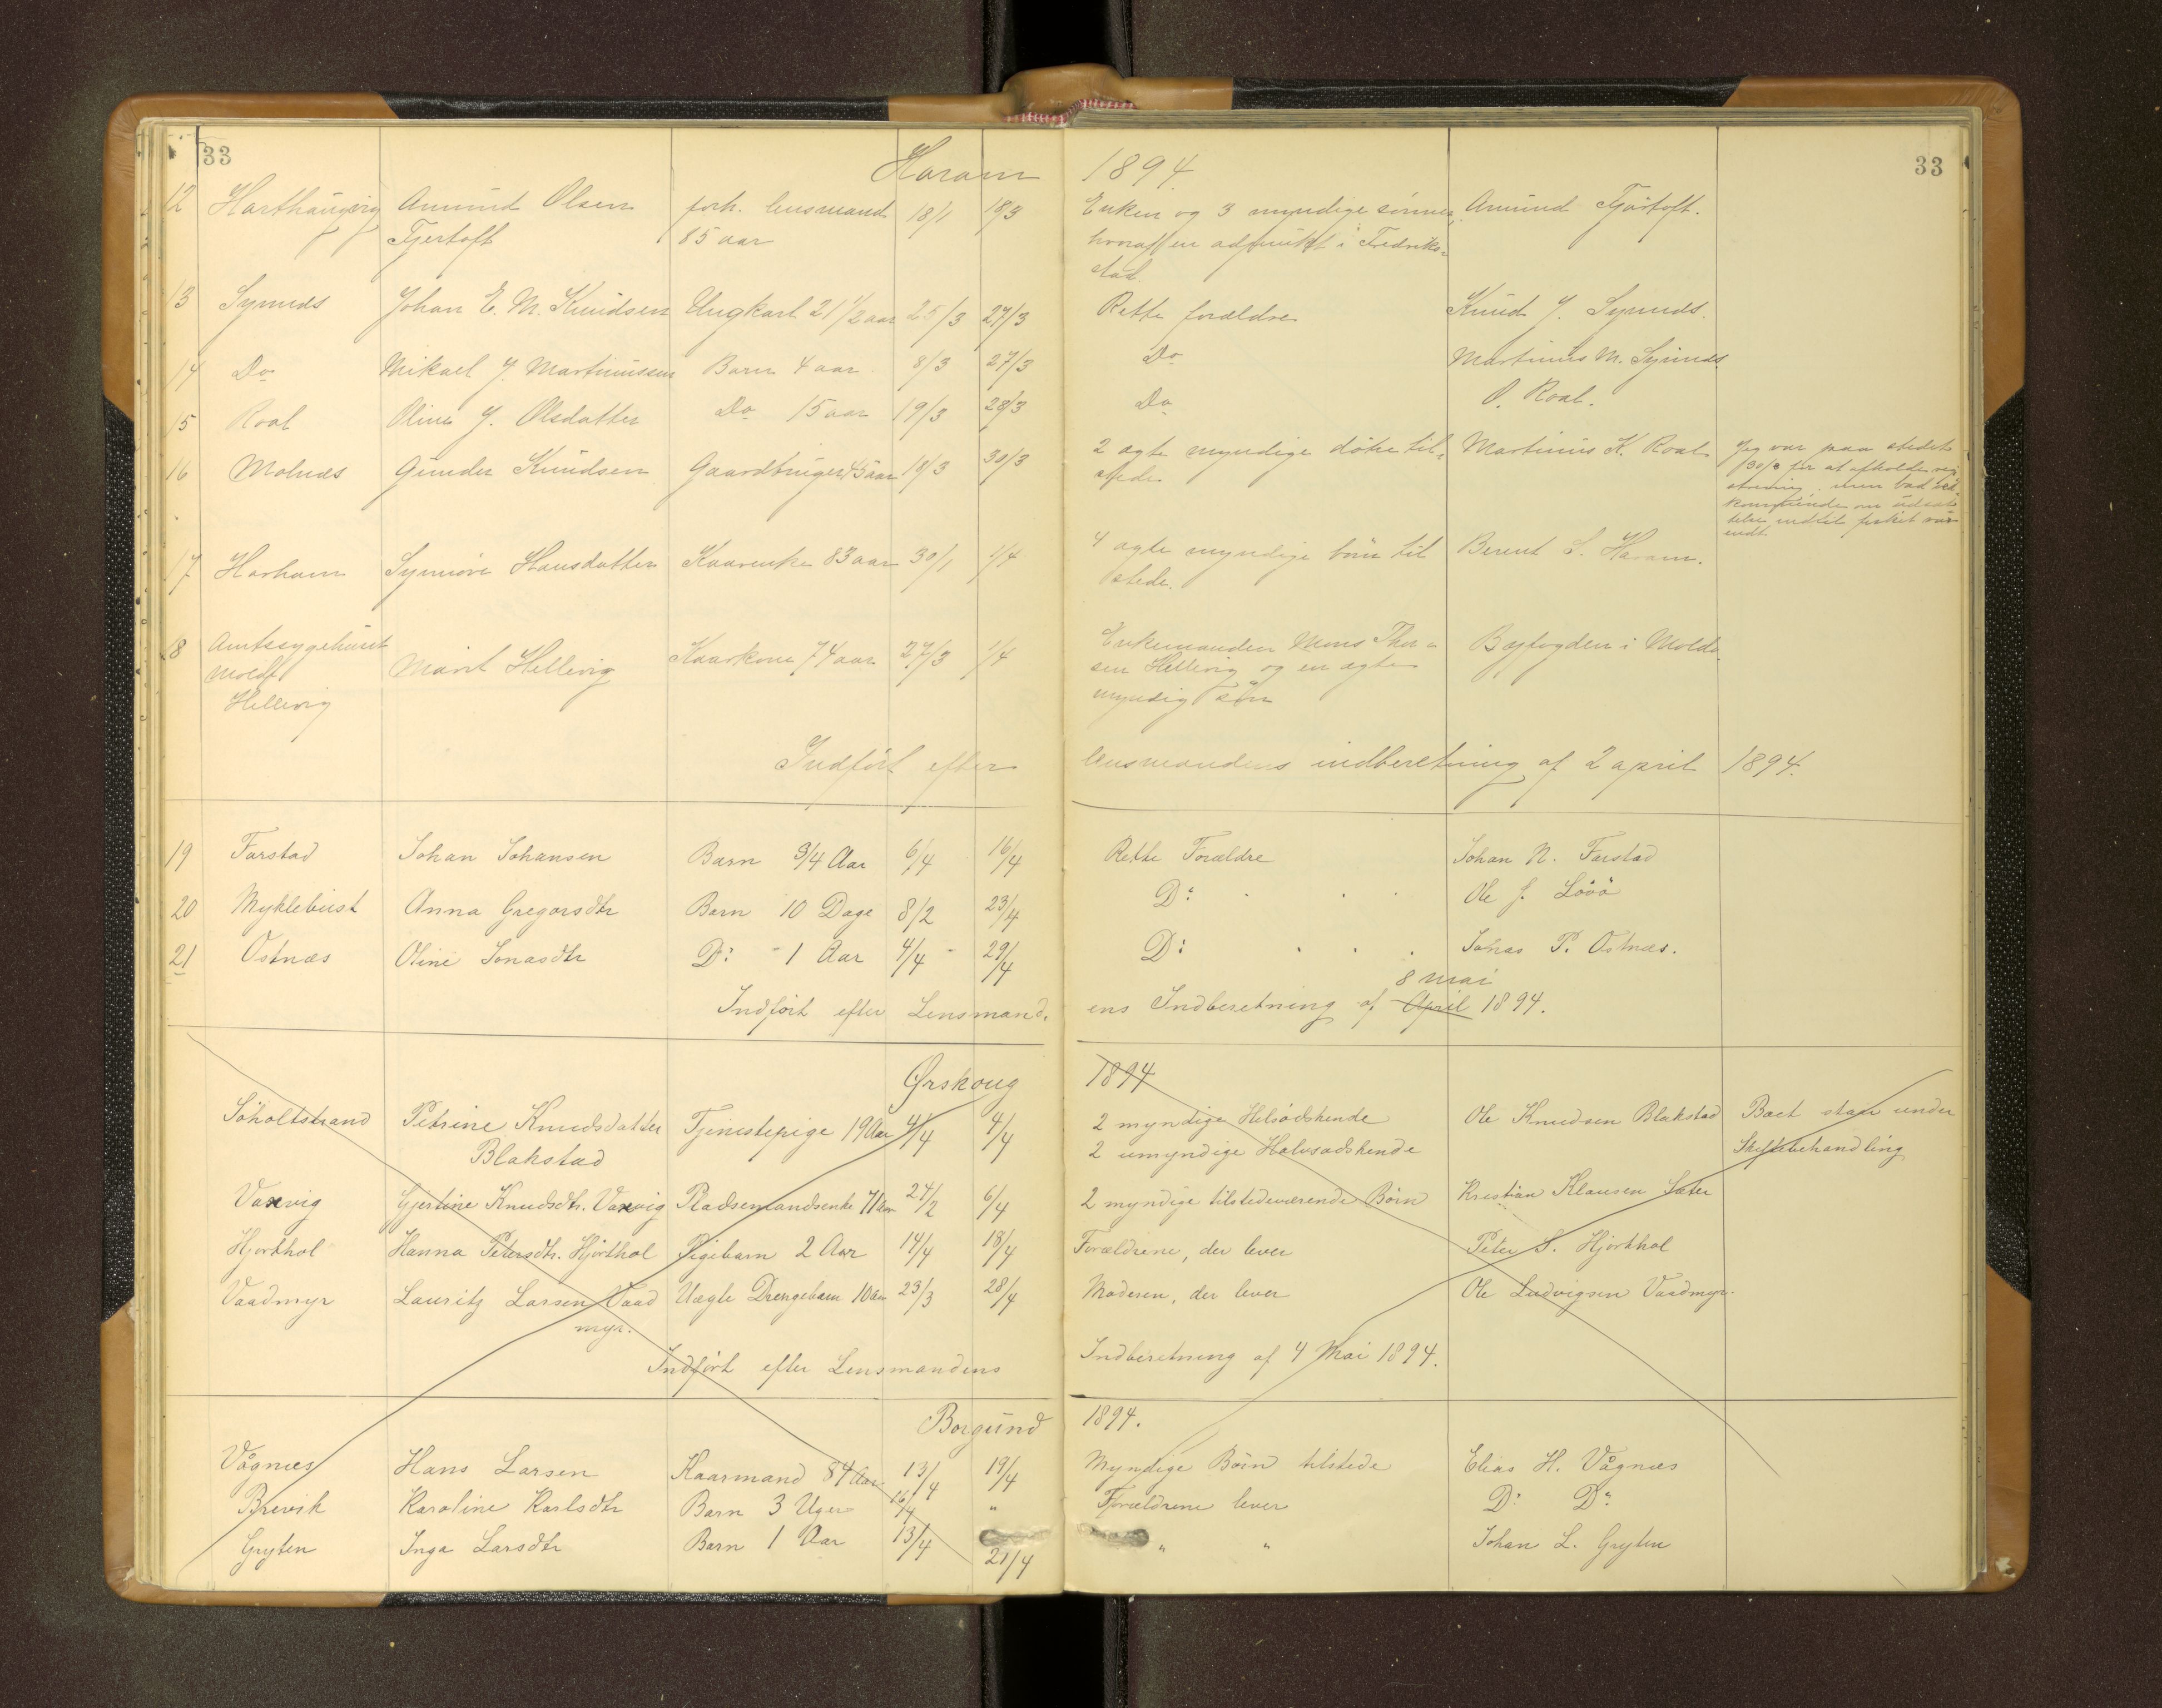 33
33
Haram 1894.
12 Harthaugvig Amund Olsen forh. lensmand 18/1 18/3 Enken og 3 myndige sönner, Amund Fjörtoft.
Fjertoft 85 aar hvoraf en adjunkt i Fredriks=
stad.
13 Synnes Johan E. M. Knudsen Ungkarl 21 1/2 aar 25/3 27/3 Rette forældre Knud J. Synnes.
14 Do Mikael J. Martinussen Barn 4 aar. 8/3 27/3 Do Martinus M. Synnes.
15 Roal Oline J. Olsdatter Do 15 aar 19/3 28/3 Do O. Roal.
16 Molnes Gunder Knudsen Gaardbruger 45 aar 18/3 30/3 2 ægte myndige dötre til= Martinus K. Roal Jeg var paa stedet
stede 30/3 for at afholde re
men bad ved
kommende om udsæt
telse indtil fisket var
endt.
17 Harham Synnöve Hansdatter Kaarenke 83 aar 30/1 1/4 4 ægte myndige börn til Berent S. Haram.
stede.
18 Amtssygehuset Marit Hellevig Kaarkone 74 aar 27/3 1/4 Enkemanden Mons Thor= Byfogden i Molde
Molde sen Hellevig og en ægte
Hellevig myndig sön
Indfört efter lensmandens indberetning af 2 april 1894.
19 Farstad Johan Johansen Barn 3/4 Aar 6/4 16/4 Rette Forældre Johan N. Farstad
20 Myklebust Anna Gregorsdtr Barn 10 Dage 8/2 23/4 Do Ole J. Lövö
21 Ostnæs Oline Jonasdtr Do - 1 Aar 4/4 - 29/4 Do Johas P. Ostnæs.
8 mai
Indfört efter Lensmand= ens Indberetning af April 1894.
Ørskoug 1894
Söholtstrand Petrine Knudsdatter Tjenestepige 19 Aar 4/4 4/4 2 myndige Helsödskende Ole Knudsen Blakstad Boet staar under
Blakstad 2 umyndige Halvsödskende Skiftebehandling
Vaxvig Gjertine Knudsdtr. Vaxvig Pladsemandsenke 71 Aar 24/2 6/4 2 myndige tilstedeværende Börn Kristian Klausen Sæter
Hjorthol Hanna Petersdtr. Hjorthol Pigebarn 2 Aar 14/4 18/4 Forældrene, der lever Peter S. Hjorthol
Vaadmyr Lauritz Larsen Vaad Uægte Drengebarn 10 Aar 23/3 28/4 Moderen, der lever Ole Ludvigsen Vaadmyr.
myr.
Indfört efter Lensmandens Indberetning af 4 Mai 1894.
Borgund 1894.
Vågnæs Hans Larsen Kaarmand 84 Aar 13/4 19/4 Myndige Börn tilstede Elias H. Vågnæs
Brevik Karoline Karlsdtr Barn 3 Uger 16/4 " Forældrene lever Do Do
Gryten Inga Larsdtr Barn 1 Aar 13/4 21/4 " " Johan L. Gryten